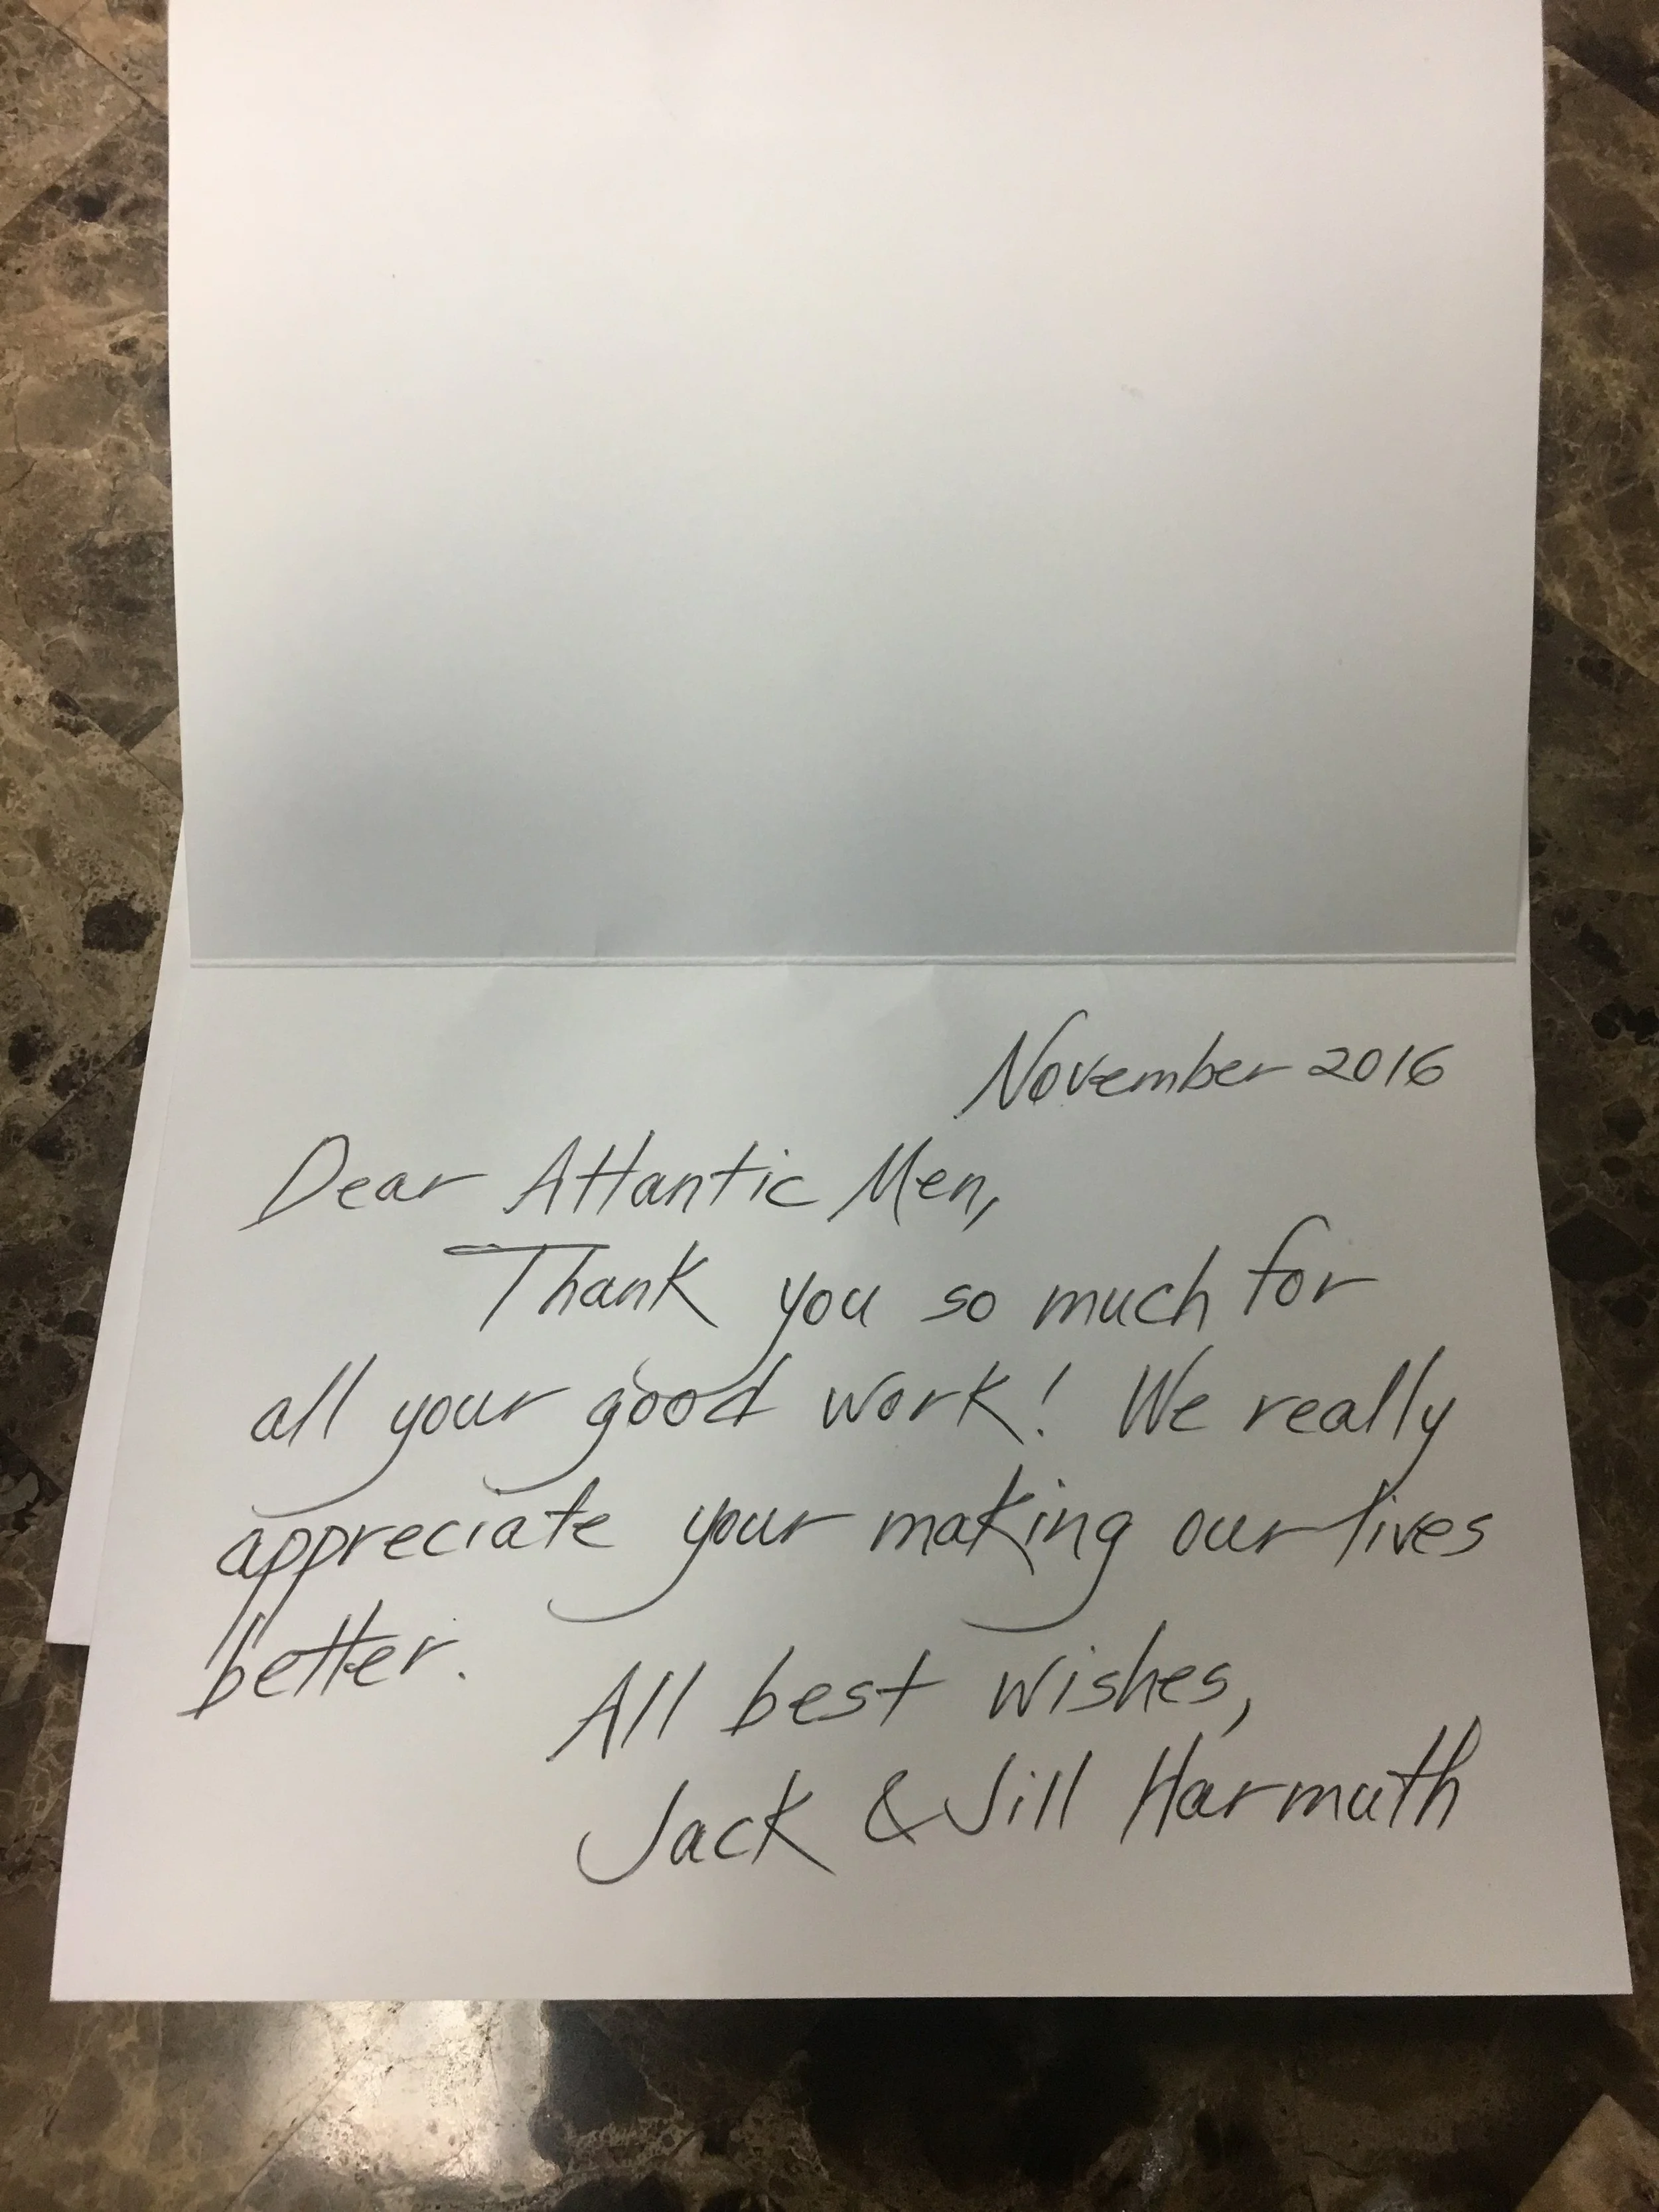 November 2016
Dear Atlantic Men,
Thank you so much for
all your good work! We really
appreciate your making our lives
better.
All best wishes,
Jack & Jill Harmuth